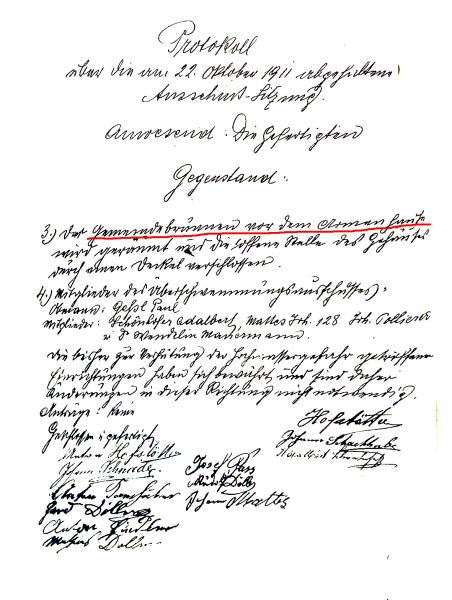 Protokoll
über die am 22. Oktober 1911 abgehaltene
Ausschuss-Sitzung.
Anwesend: Die Gefertigten
Gegenstand:
3.) Der Gemeindebrunnen vor dem Armenhause
wird geräumt und die offene Stelle des Gehäuses
durch einen Deckel verschlossen.
4.) Mitglieder des Überschwemmungsausschusses:
Obmann: Paul
Mitglieder: Adalbert, Mattes Joh. 128 Joh.
u. Wendelin
Die bisher zur Verhütung der Hochwassergefahr getroffenen
Einrichtungen haben sich bewährt und sind daher
Änderungen in dieser Richtung nicht notwendig.
Anträge: keine
Geschlossen u. gefertigt
Anton
Johann
Josef
Rudolf
Johann Mattes
Anton
Mathias